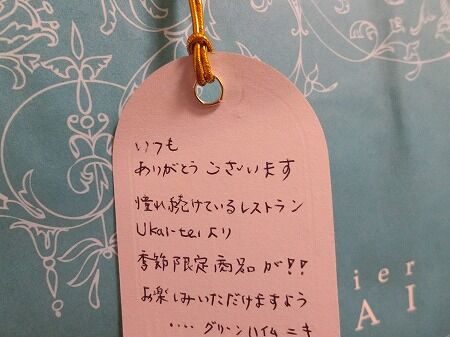 いつも
ありがとうございます
憧れ続けているレストラン
Ukai-teiより
季節限定商品が!!
お楽しみいただけますよう
‥‥グリーンハイムニキ
ier
AI